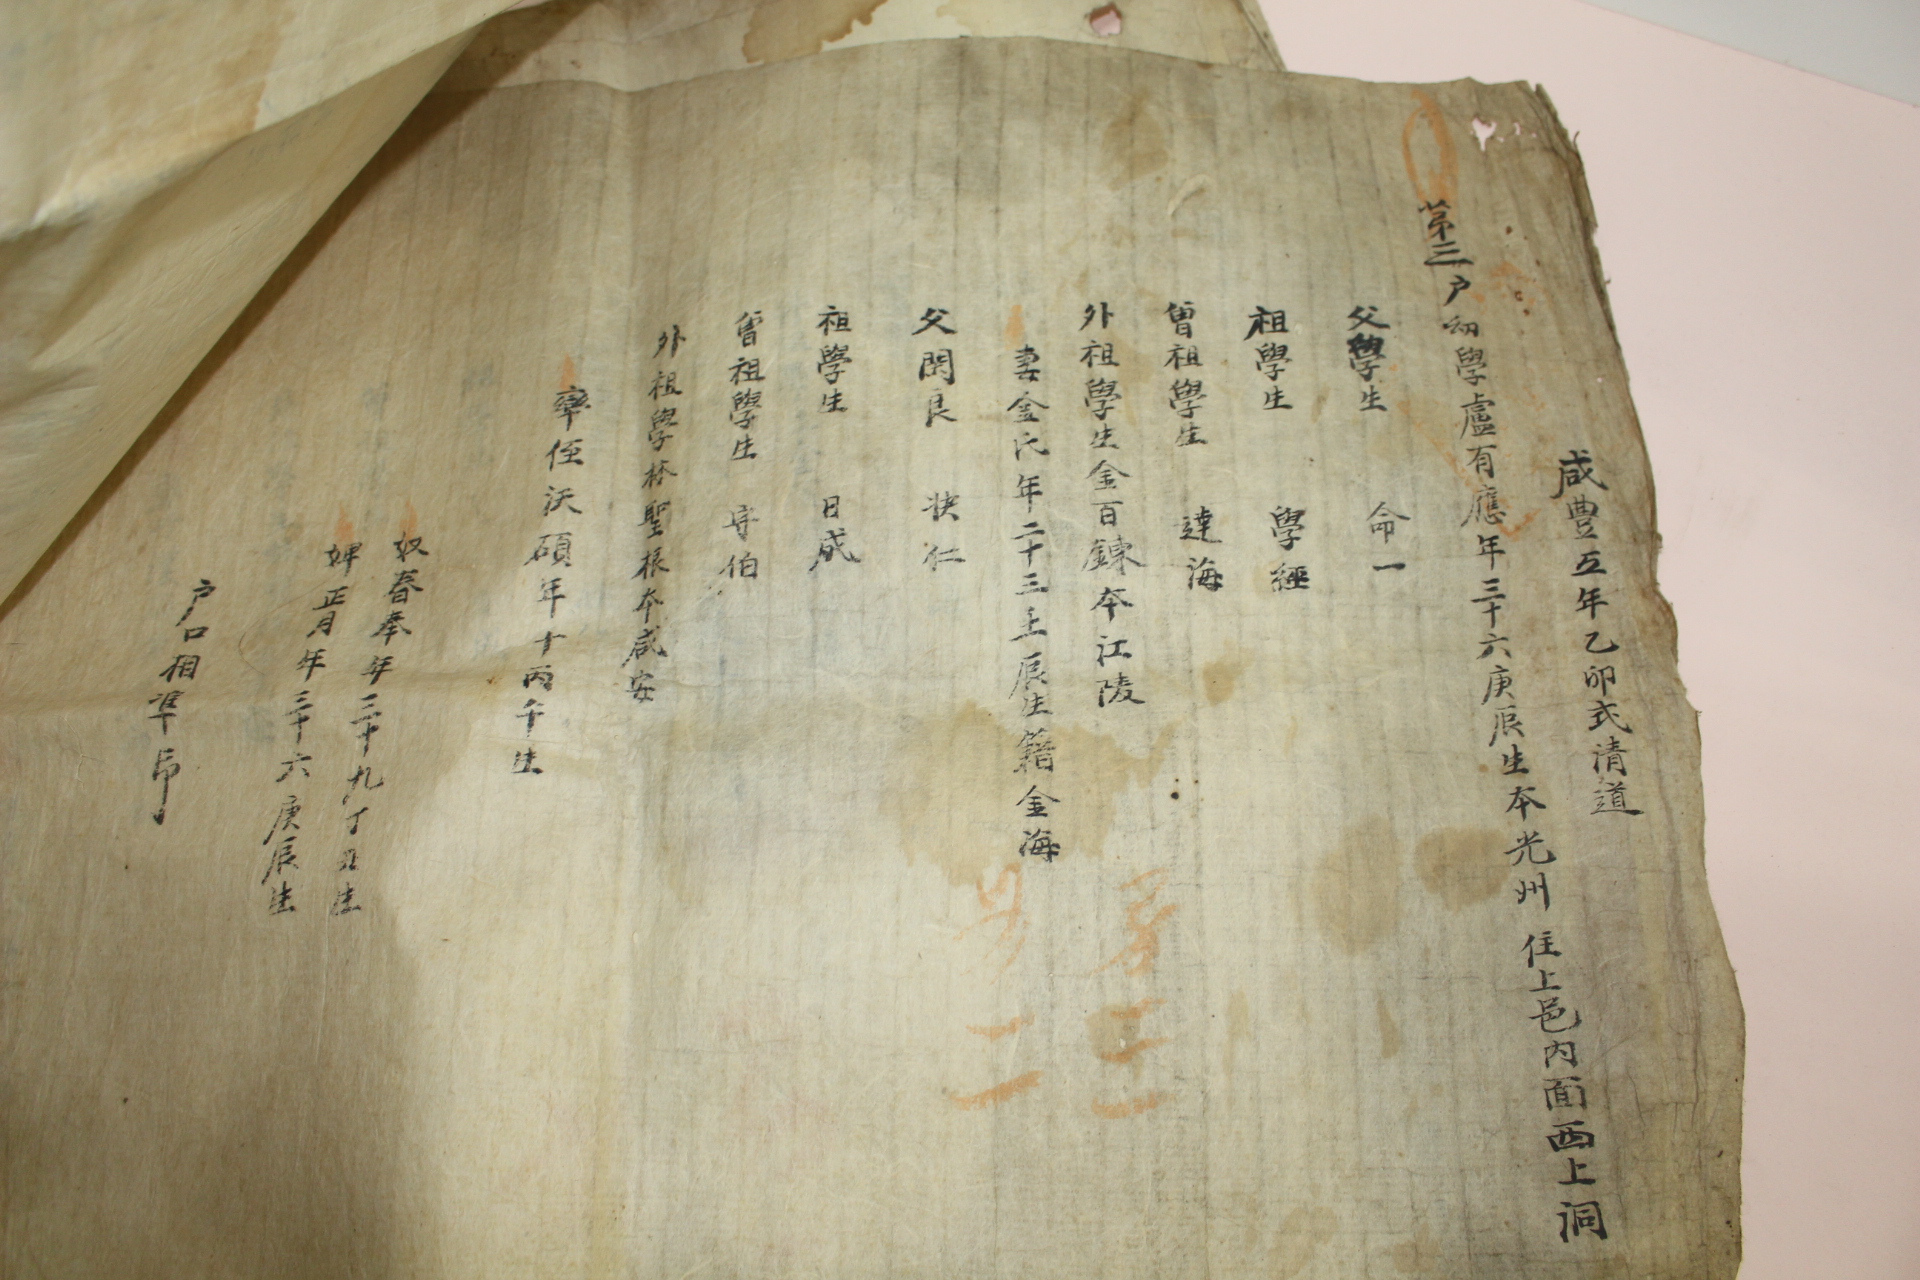 咸豊五年乙卯式清道
第三戸幼學盧有應年三十六庚辰生本光州 住上邑内面西上洞
父學生 命一
祖學生 學經
曾祖學生 達海
外祖學生金百鍊本江陵
妻金氏年二十三壬辰生籍金海
父閑良 状仁
祖學生 日成
曾祖學生 守伯
外祖學 聖根本咸安
率侄沃碩年十丙午生
奴春奉年三十九丁丑生
婢正月年三十六庚辰生
戸口相凖印